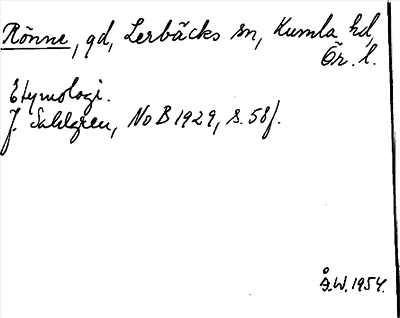 Rönne, gd, Lerbäcks sn, Kumla hd,
Ör. l.
Etymologi.
J. Sahlgren, NoB 1929, s. 58f.
Å.W. 1954.